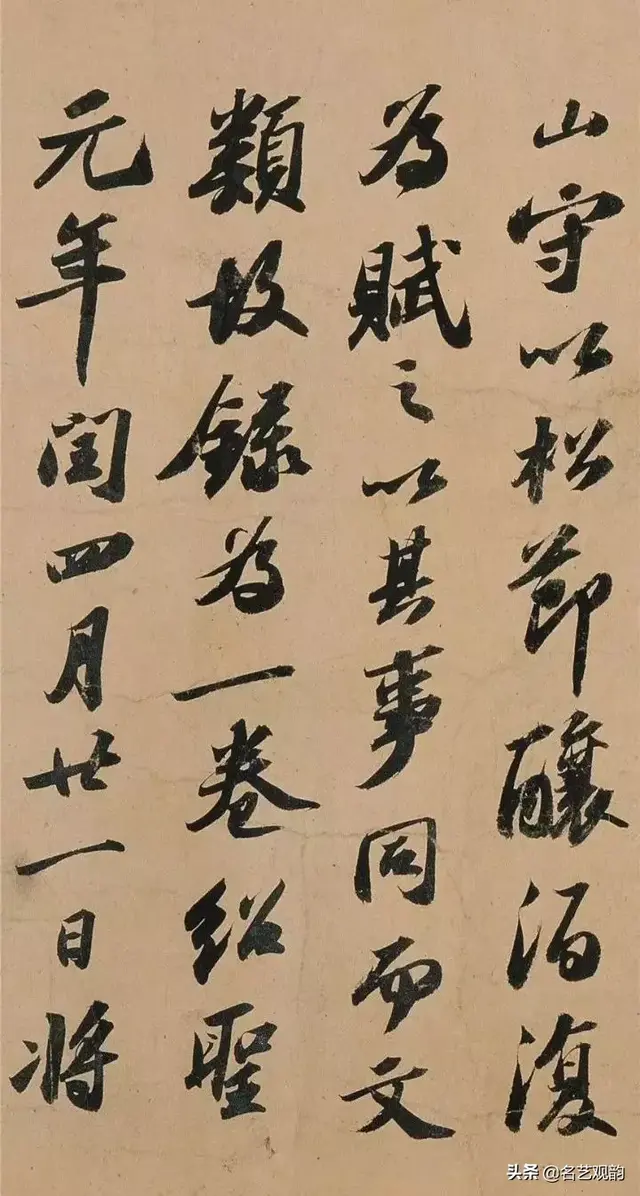 山守以松節釀酒復
為賦之以其事同而文
類故錄為一卷紹聖
元年閏四月廿一日將
头条 @名艺观韵